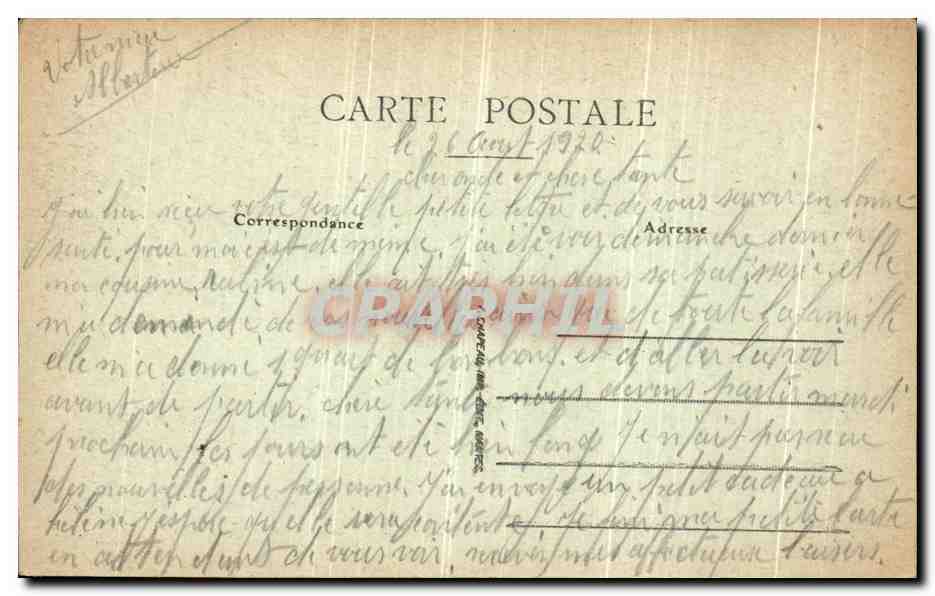 Votre nièce
Albertine
CARTE POSTALE
le 26 Aout 1920
cher oncle et chere tante
J'ai bien reçu votre gentille petite lettre et de vous savoir en bonne
Correspondance
Adresse
santé, pour moi c'est de même, j'ai été voir dimanche dernier
ma cousine, elle ait très bien dans sa patisserie, elle
CPAPHIL
m'a demandé de de toute la famille
elle m'a donné 1 quart de bonbons, et d'aller la voir
avant de partir. chère tante nous devons partir mardi
prochain les jours ont été bien longs J'en ait pas reçu
des nouvelles de personne. J'ai envoyé un petit cadeau a
hélène j'espère qu'elle sera contente. Je fini ma petite carte
en attendant de vous voir, recevoir mes affectueux baisers.
CHAPEAU, IMP. EDIT., NANTES.